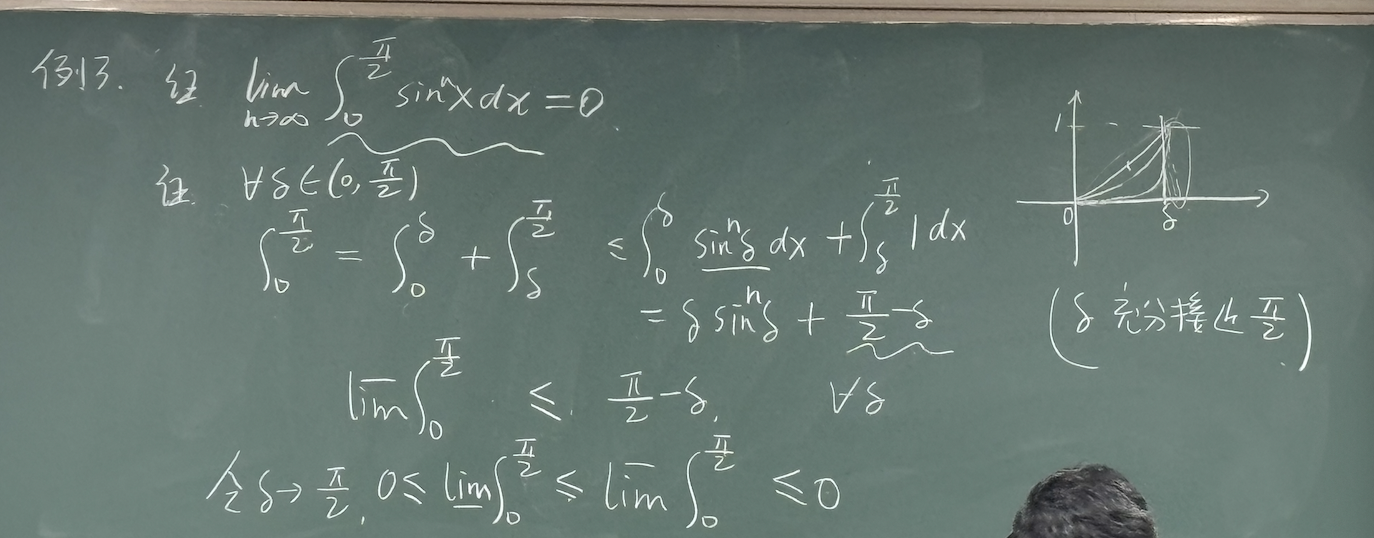 例3. 证 lim_{n→∞} ∫_0^{π/2} sin^n x dx = 0.
证. ∀δ∈(0, π/2)
∫_0^{π/2} = ∫_0^δ + ∫_δ^{π/2} ≤ ∫_0^δ sin^n δ dx + ∫_δ^{π/2} 1 dx
= δ sin^n δ + π/2 - δ
\overline{lim} ∫_0^{π/2} ≤ π/2 - δ, ∀δ
令 δ→π/2, 0 ≤ \underline{lim} ∫_0^{π/2} ≤ \overline{lim} ∫_0^{π/2} ≤ 0
1
0 δ
(δ 充分接近 π/2)